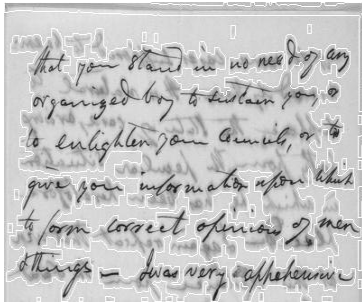 that you stand in no need of any
organized boy to sustain you or
to enlighten your Councils, or to
give you information upon which
to form correct opinions of men
& things — I was very apprehensive